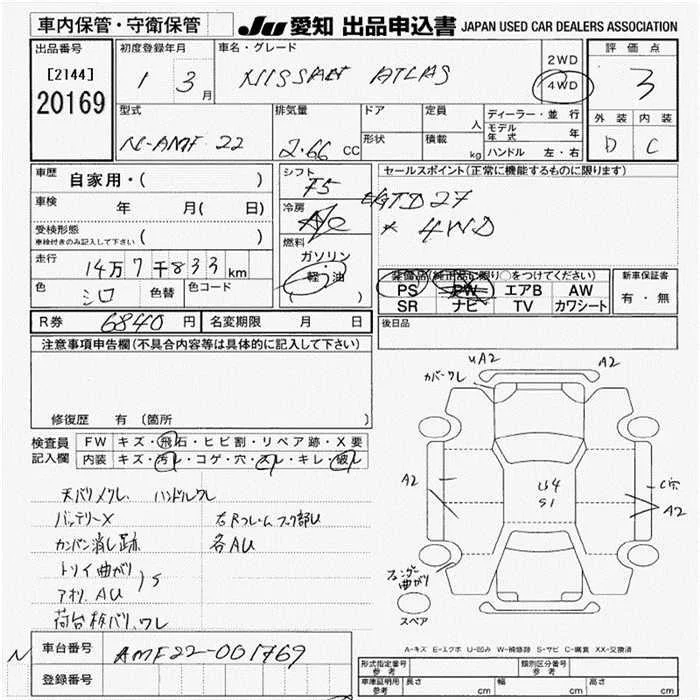 車内保管・守衛保管 JU 愛知 出品申込書 JAPAN USED CAR DEALERS ASSOCIATION
出品番号 初度登録年月 車名・グレード 評価点
[2144] 1 3月 NISSAN ATLAS 2WD 4WD 3
20169
型式 排気量 ドア 定員 人 ディーラー・並行 外装 内装
N-AMF 22 2.66 CC 形状 積載 kg モデル年式 年 D C
ハンドル 左・右
車歴 自家用・( ) シフト F5 セールスポイント(正常に機能するものに限ります)
車検 年 月( 日) 冷房 A/C
* 4WD
受検形態 車検付きのみ記入して下さい ( ) 燃料 ガソリン・軽・油 ( )
走行 14万7千833km
装備品(純正品に限り○をつけてください) 新車保証書
色 シロ 色替 色コード PS PW エアB AW 有・無
SR ナビ TV カワシート
R券 6840円 名変期限 月 日 後日品
注意事項申告欄(不具合内容等は具体的に記入して下さい)
修復歴 有 〔箇所 〕
検査員記入欄 FW キズ・飛石・ヒビ割・リペア跡・X要
内装 キズ・汚れ・コゲ・穴・スレ・キレ・破れ
天バリメクレ ハンドルワレ
バッテリーX 右Rフレームフック部U
カンバン消し跡 各AU
トリイ曲がり
アオリ AU
荷台板バリ、ワレ
UA2 A2
カバーワレ
A2 U4 S1 C穴 A2
フェンダー曲がり
スペア
A-キズ E-エクボ U-凹み W-補修跡 S-サビ C-腐食 XX-交換済
N 車台番号 AMF22-001769
登録番号
形式指定番号 参考 類別区分番号 参考
車庫証明用 参考 長さ cm 幅 cm 高さ cm